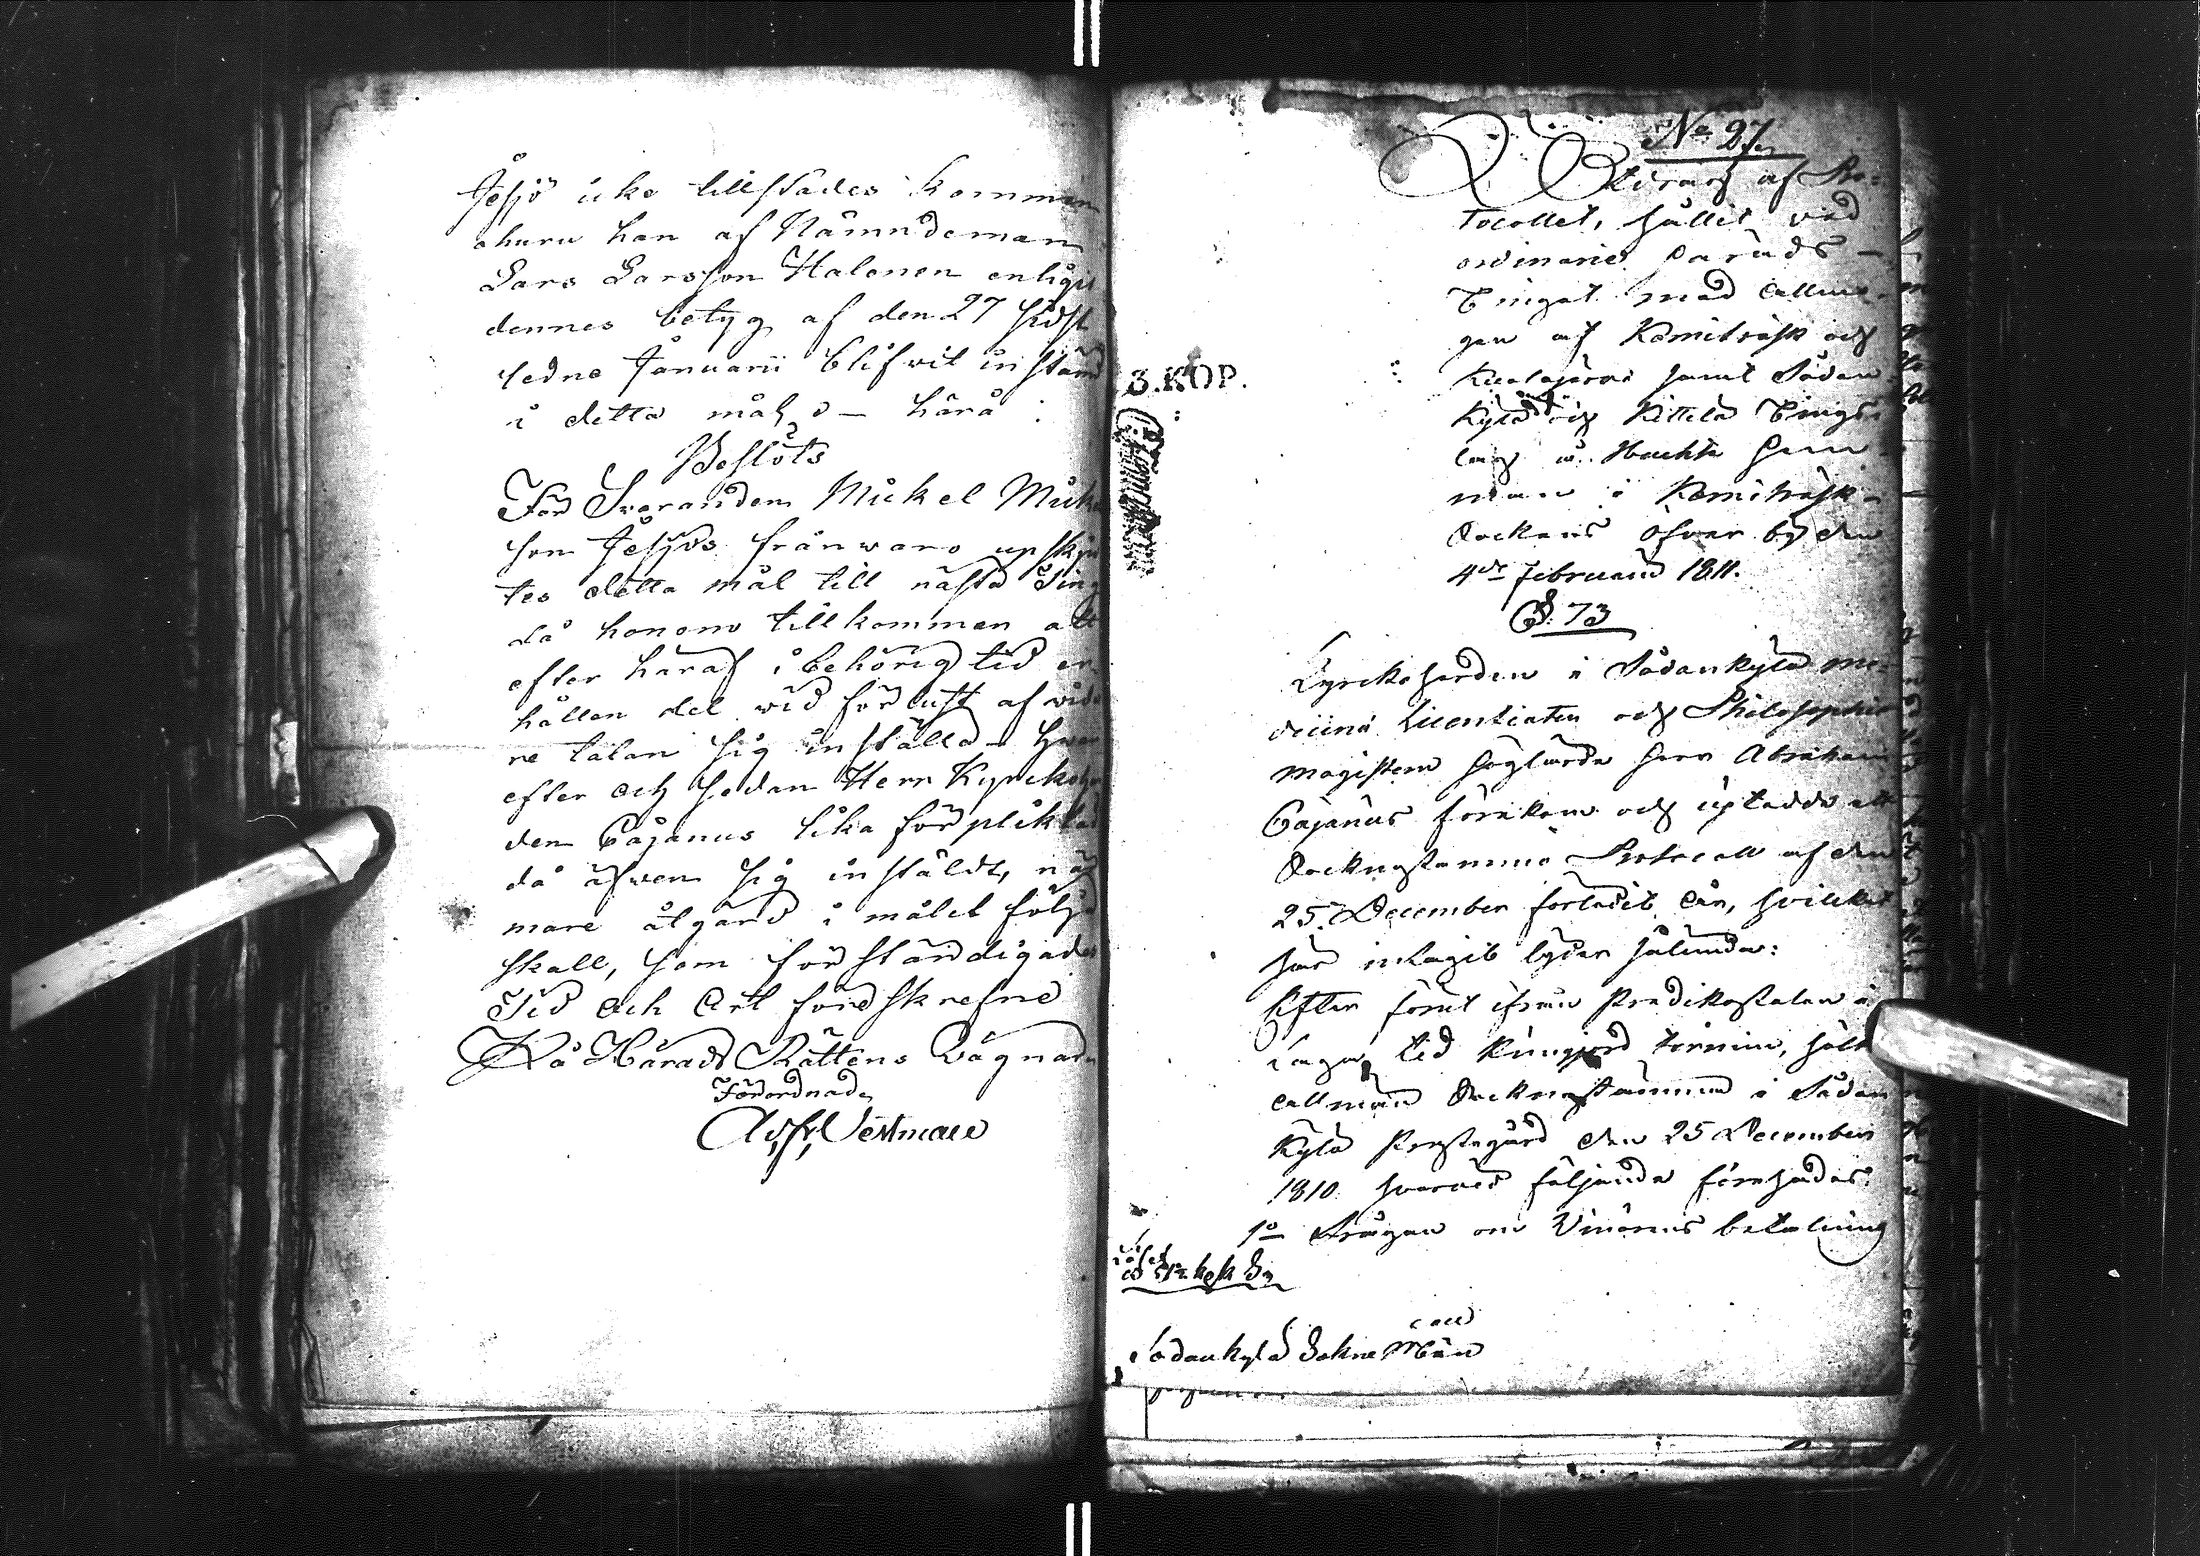 Jesjö icke tillstädes kommen
ehuru han af Nämndeman
Lars Larsson Halonen enligit
dennes betyg af den 27 sidst
ledne Januarii blifvit instämd
i detta mål, o – härå :
Beslöts
För Svaranden Mickel Micke
son Jesjös frånvaro upskju
tes detta mål till nästa Ting
då honom tillkommer att
efter häraf i behörig tid er
hållen del vid förlust af vida
re talan sig inställa – hvar
efter och sedan Herr Kyrckoher
den Cajanus lika förpliktad
då äfven sig instäldt, när
mare åtgärd i målet följa
skall, som förständigades
Tid och Ort föreskrefne
På Härads Rättens Vägnar
Förordnad
Ad. Fr. Vestman
No 27
Utdrag af Pro-
tocollet, hållit vid
ordinarie Härads –
Tinget med Allmo-
gen af Kemiträsk och
Kuolajärvi samt Sodan
kylä och Kittilä Tings-
lag å Huchta hem
man i Kemiträsk
Sockens öfver by den
4de Februarii 1811.
§. 73
Kyrckoherden i Sodankylä Me-
dicinæ Licentiaten och Philosophiæ
Magistern Höglärde Herr Abraham
Cajanus förekom och uptedde ett
Sockenstämmo Protocoll af den
25. December förledit år, hvilket
här intagit lyder sålunda:
Efter förut ifrån Predikostolen i
laga tid kungjord termin, hölts
allmän Sockenstämma i Sodan
kylä Prestegård den 25 December
1810 hvarvid följande förehades:
1o Frågan om Vinörnes betalning
3. KOP.
Sodankylä Sokne Män